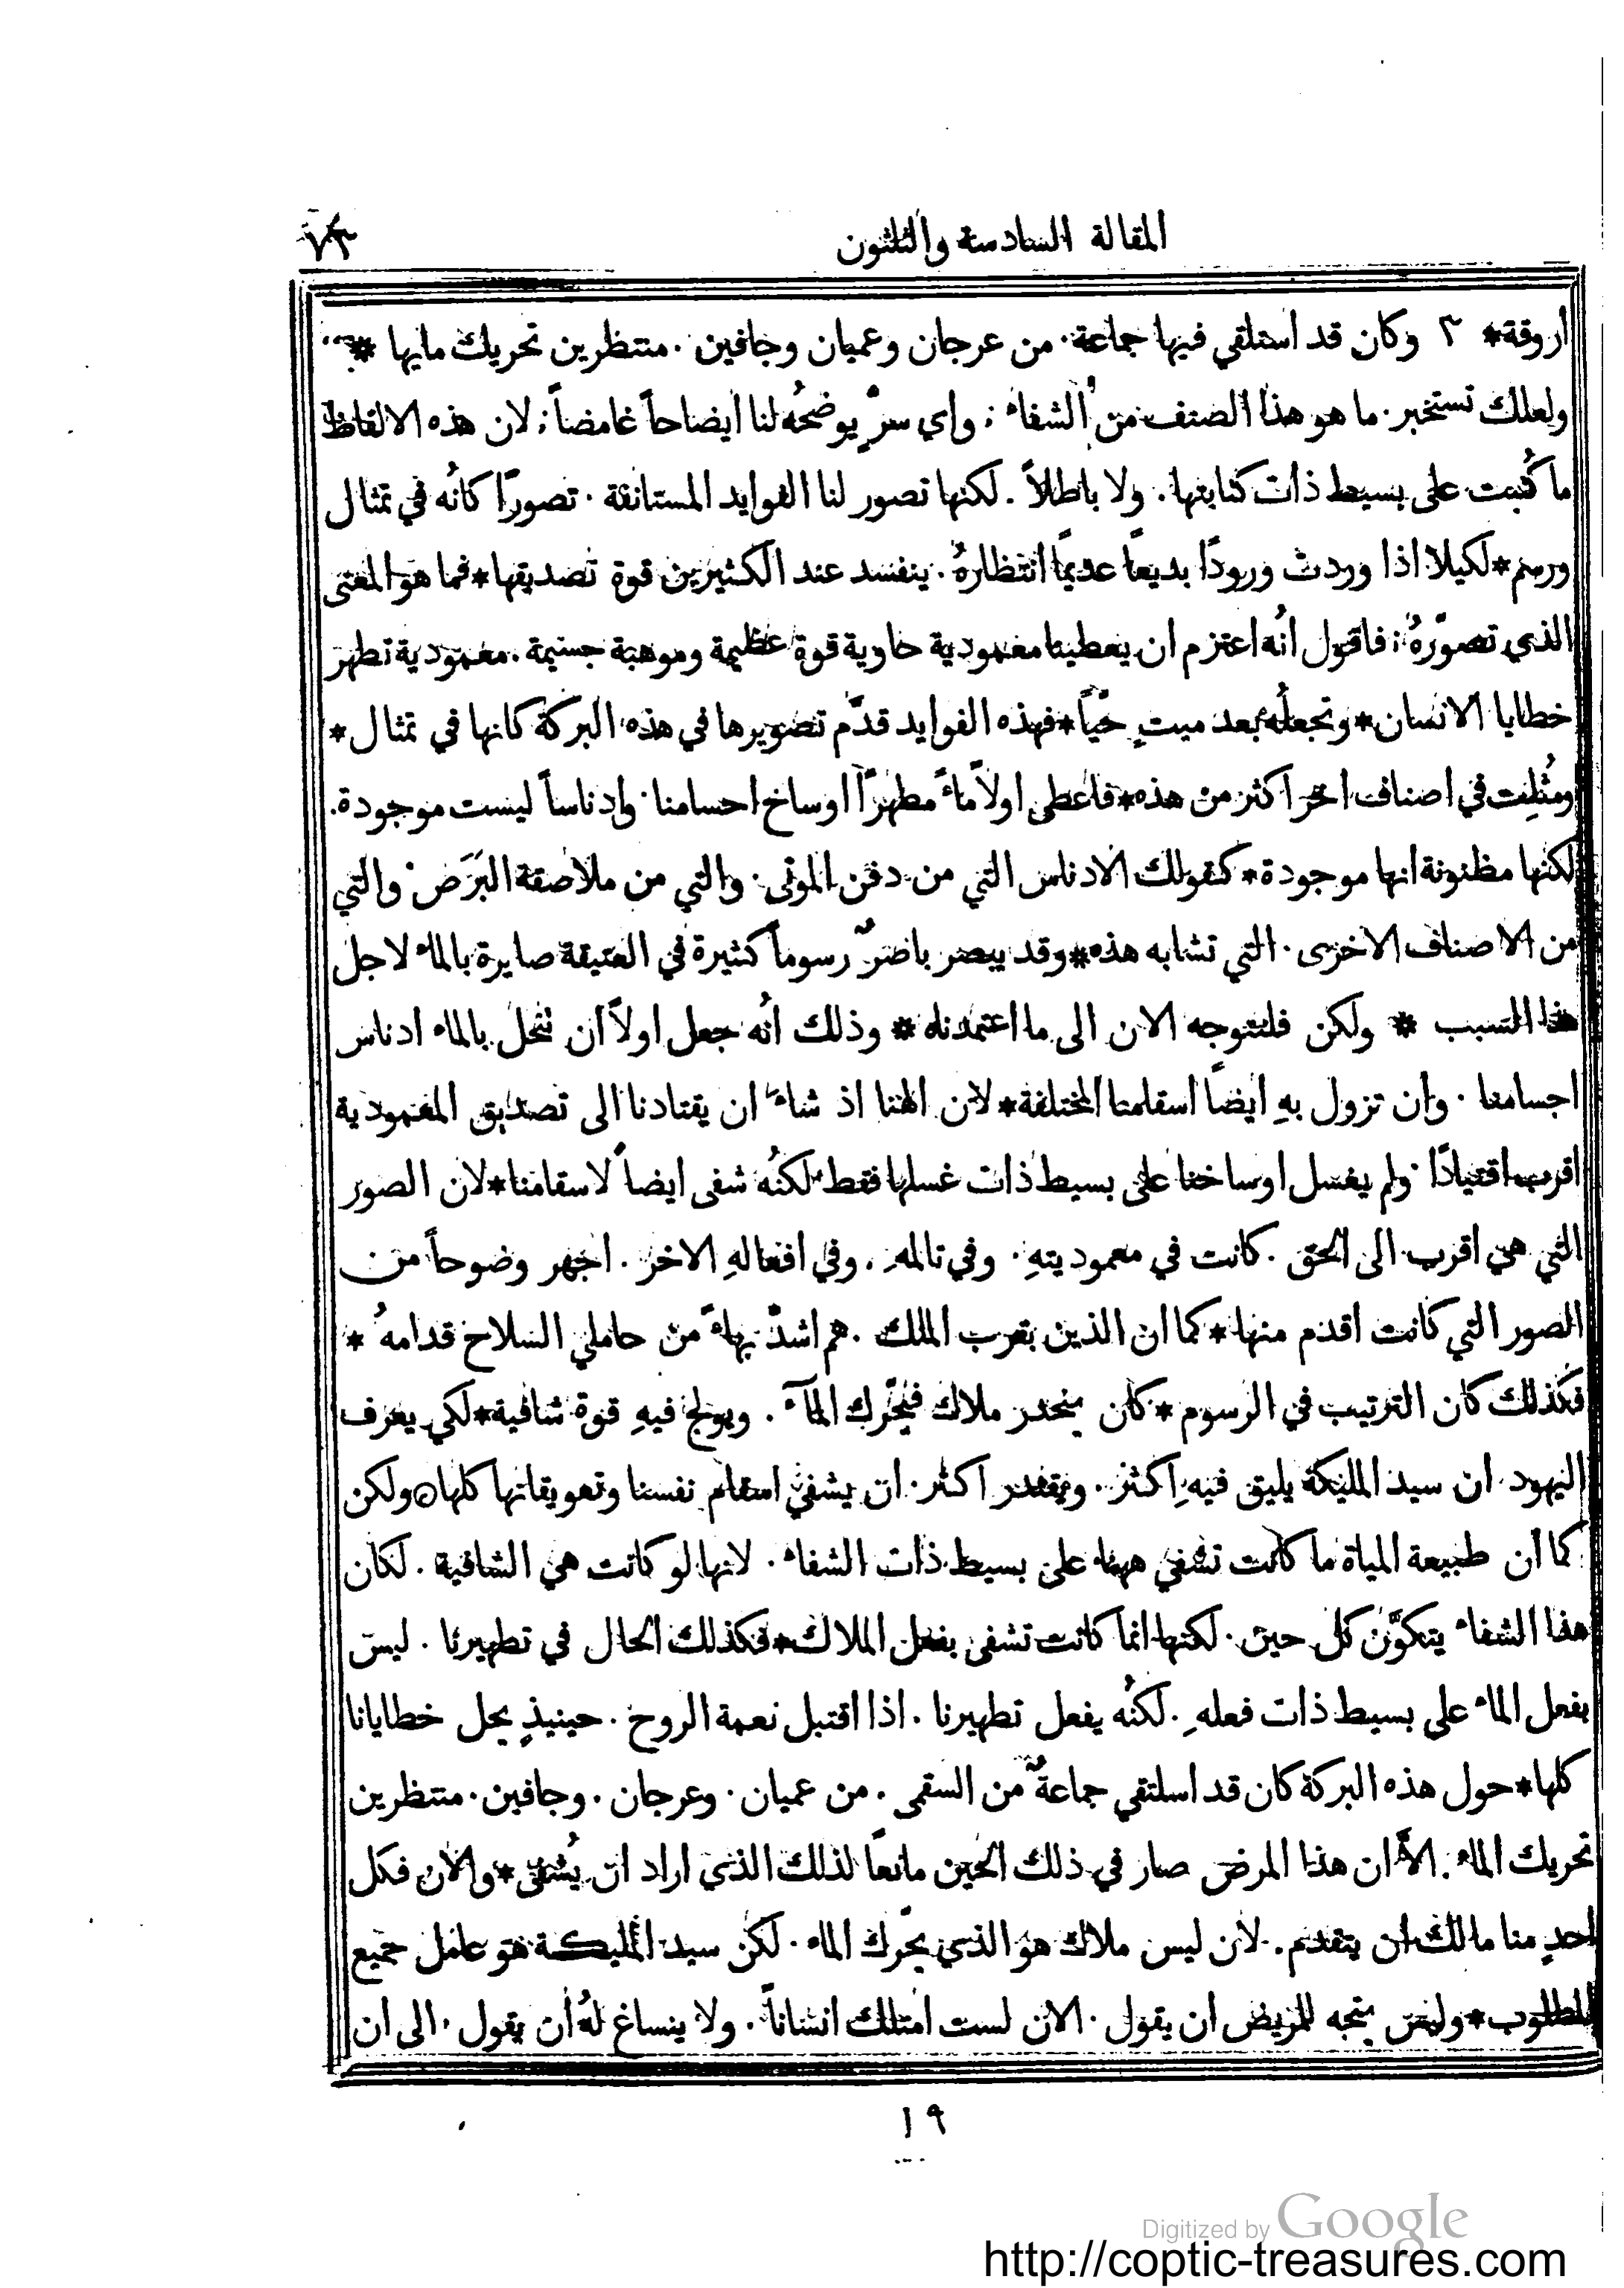 المقالة السادسة والثلثون
٧٣
أروقة* ٣ وكان قد استلقي فيها جماعة. من عرجان وعميان وجافين. منتظرين تحريك مايها *
ولعلك تستخبر. ما هو هذا الصنف من الشفاء; واي سرٍّ يوضحُه لنا ايضاحاً غامضاً; لان هذه الالفاظ
ما كُتبت على بسيط ذات كتابتها. ولا باطلاً. لكنها تصور لنا الفوايد المستانفة. تصورًا كانُه في تمثال
ورسم*لكيلا اذا وردت ورودًا بديعًا عديمًا انتظارهُ. ينفسد عند الكثيرين قوة تصديقها*فما هو المعنى
الذي تصوّرهُ; فاقول انُه اعتزم ان يعطينا معمودية حاوية قوة عظيمة وموهبة جسيمة. معمودية تطهر
خطايا الانسان*وتجعلُه بعد ميتٍ حيّاً*فهذه الفوايد قدّم تصويرها في هذه البركة كانها في تمثال*
ومُثلِت في اصناف اخر اكثر من هذه*فاعطى اولاً ماءً مطهرًا اوساخ احسامنا. وادناساً ليست موجودة.
لكنها مظنونة انها موجودة*كقولك الادناس التي من دفن الموتى. والتي من ملاصقة البَرَص. والتي
من الاصناف الاخرى. التي تشابه هذه*وقد يبصر باضرٌ رسوماً كثيرة في العتيقة صايرة بالماء لاجل
هذا السبب * ولكن فلنتوجه الان الى ما اعتمدناه * وذلك انُه جعل اولاً ان تنحل بالماء ادناس
اجسامنا. وان تزول بهِ ايضاً اسقامنا المختلفة*لان الهنا اذ شاء ان يقتادنا الى تصديق المعمودية
اقرب اقتيادًا. ولم يغسل اوساخنا على بسيط ذات غسلها فقط. لكنُه شفى ايضاً لاسقامنا*لان الصور
التي هي اقرب الى الحق. كانت في معموديتهِ. وفي تالمهِ. وفي افعالهِ الاخر. اجهر وضوحاً من
الصور التي كانت اقدم منها*كما ان الذين بقرب الملك. هم اشدّ بهاءً من حاملي السلاح قدامهُ *
فكذلك كان الترتيب في الرسوم*كان ينحدر ملاك فيحّرك المآء. ويولج فيهِ قوة شافية*لكي يعرف
اليهود. ان سيد المليكة يليق فيهِ اكثر. ويقتدر اكثر. ان يشفي اسقام نفسنا وتعويقاتها كلها٥ولكن
كما ان طبيعة المياة ما كانت تشفي ههنا على بسيط ذات الشفاء. لانها لو كانت هي الشافية. لكان
هذا الشفاء يتكوَّن كل حين. لكنها انما كانت تشفى بفعل الملاك*فكذلك الحال في تطهيرنا. ليس
بفعل الماء على بسيط ذات فعلهِ. لكنُه يفعل تطهيرنا. اذا اقتبل نعمة الروح. حينيذٍ يحل خطايانا
كلها*حول هذه البركة كان قد اسلتقي جماعةٌ من السقمى. من عميان. وعرجان. وجافين. منتظرين
تحريك الماء. الاَّ ان هذا المرض صار في ذلك الحين مانعاً لذلك الذي اراد ان يُشفى*والان فكل
احدٍ منا مالك ان يتقدم. لان ليس ملاك هو الذي يحّرك الماء. لكن سيد المليكة هو عامل جميع
المطلوب*وليس يتجه للمريض ان يقول. الان لست امتلك انساناً. ولا ينساغ لهُ ان يقول. الى ان
١٩
Digitized by Google
http://coptic-treasures.com